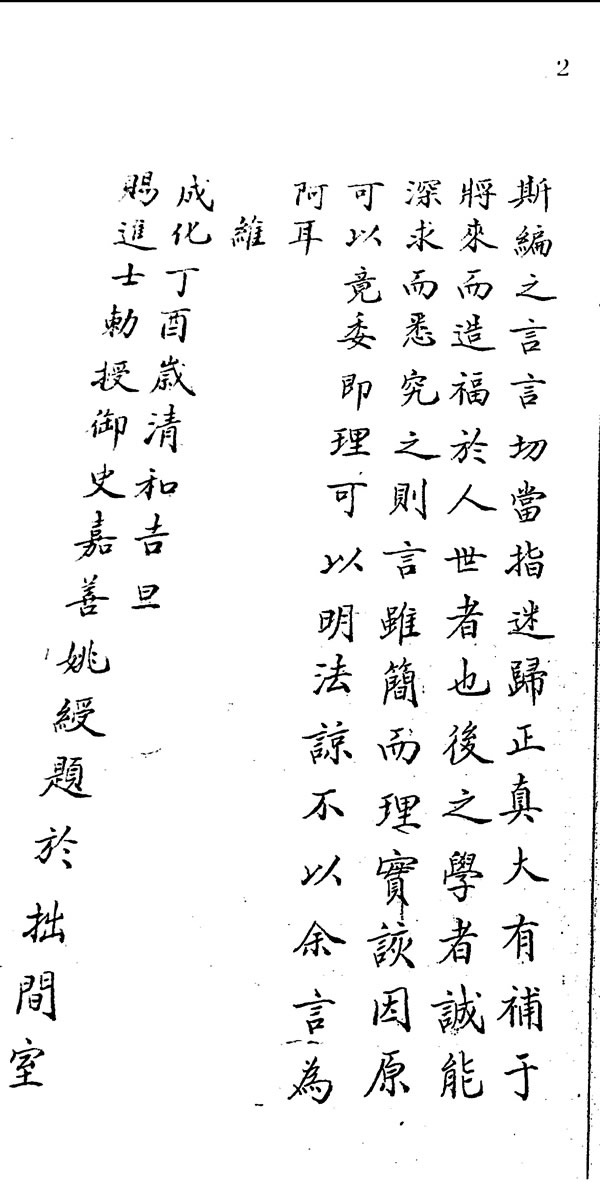 2
斯編之言言切當指迷歸正真大有補于
將來而造福於人世者也後之學者誠能
深求而悉究之則言雖簡而理實該因原
可以竟委即理可以明法諒不以余言為
阿耳
維
成化丁酉歲清和吉旦
賜進士勅授御史嘉善姚綬題於拙閒室